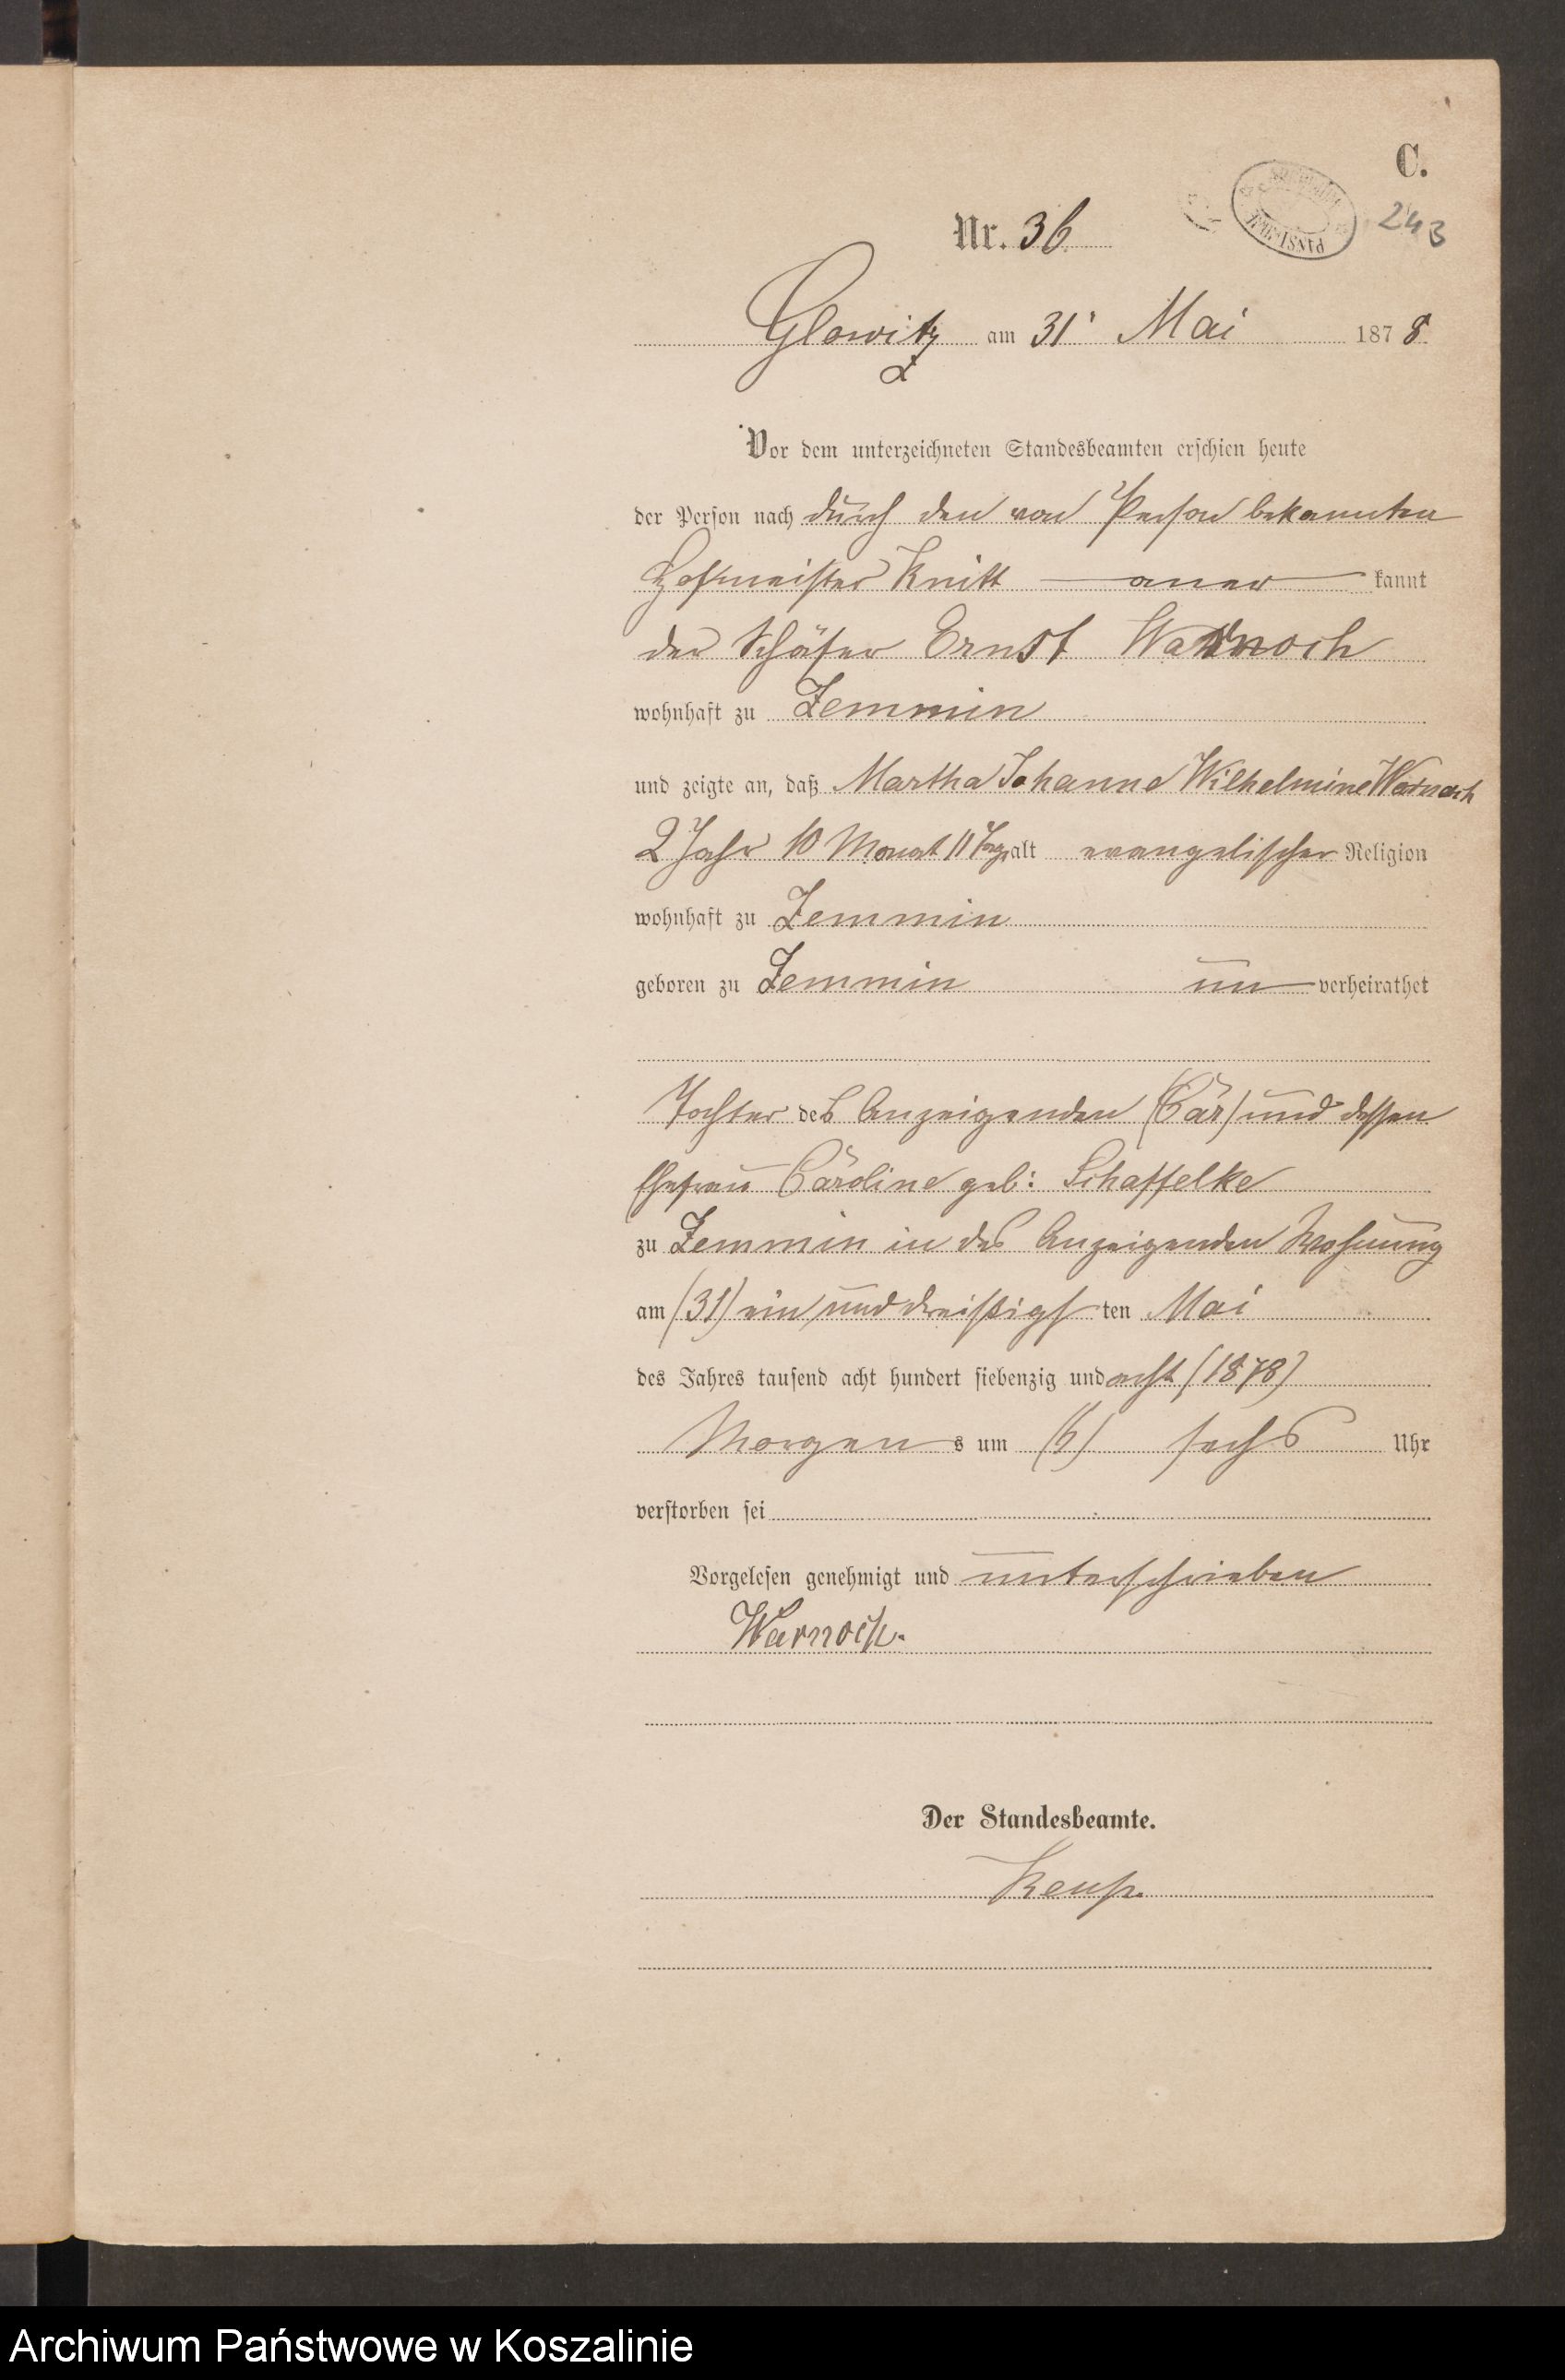 C.
243
Nr. 36
Glowitz am 31t Mai 1878
Vor dem unterzeichneten Standesbeamten erschien heute
der Person nach durch den von Person bekannten
Hofmeister Knitt — aner — kannt
der Schäfer Ernst Warnoch
wohnhaft zu Zemmin
und zeigte an, daß Martha Johanne Wilhelmine Warnoch
2 Jahr 10 Monat 11 Tage alt evangelischer Religion
wohnhaft zu Zemmin
geboren zu Zemmin un verheirathet
Tochter des Anzeigenden (Cär) und dessen
Ehefrau Caroline geb: Schaffelke
zu Zemmin in des Anzeigenden Wohnung
am (31) ein und dreißigsten Mai
des Jahres tausend acht hundert siebenzig und acht (1878)
Morgens um (6) sechs Uhr
verstorben sei
Vorgelesen genehmigt und unterschrieben
Warnoch.
Der Standesbeamte.
Archiwum Państwowe w Koszalinie